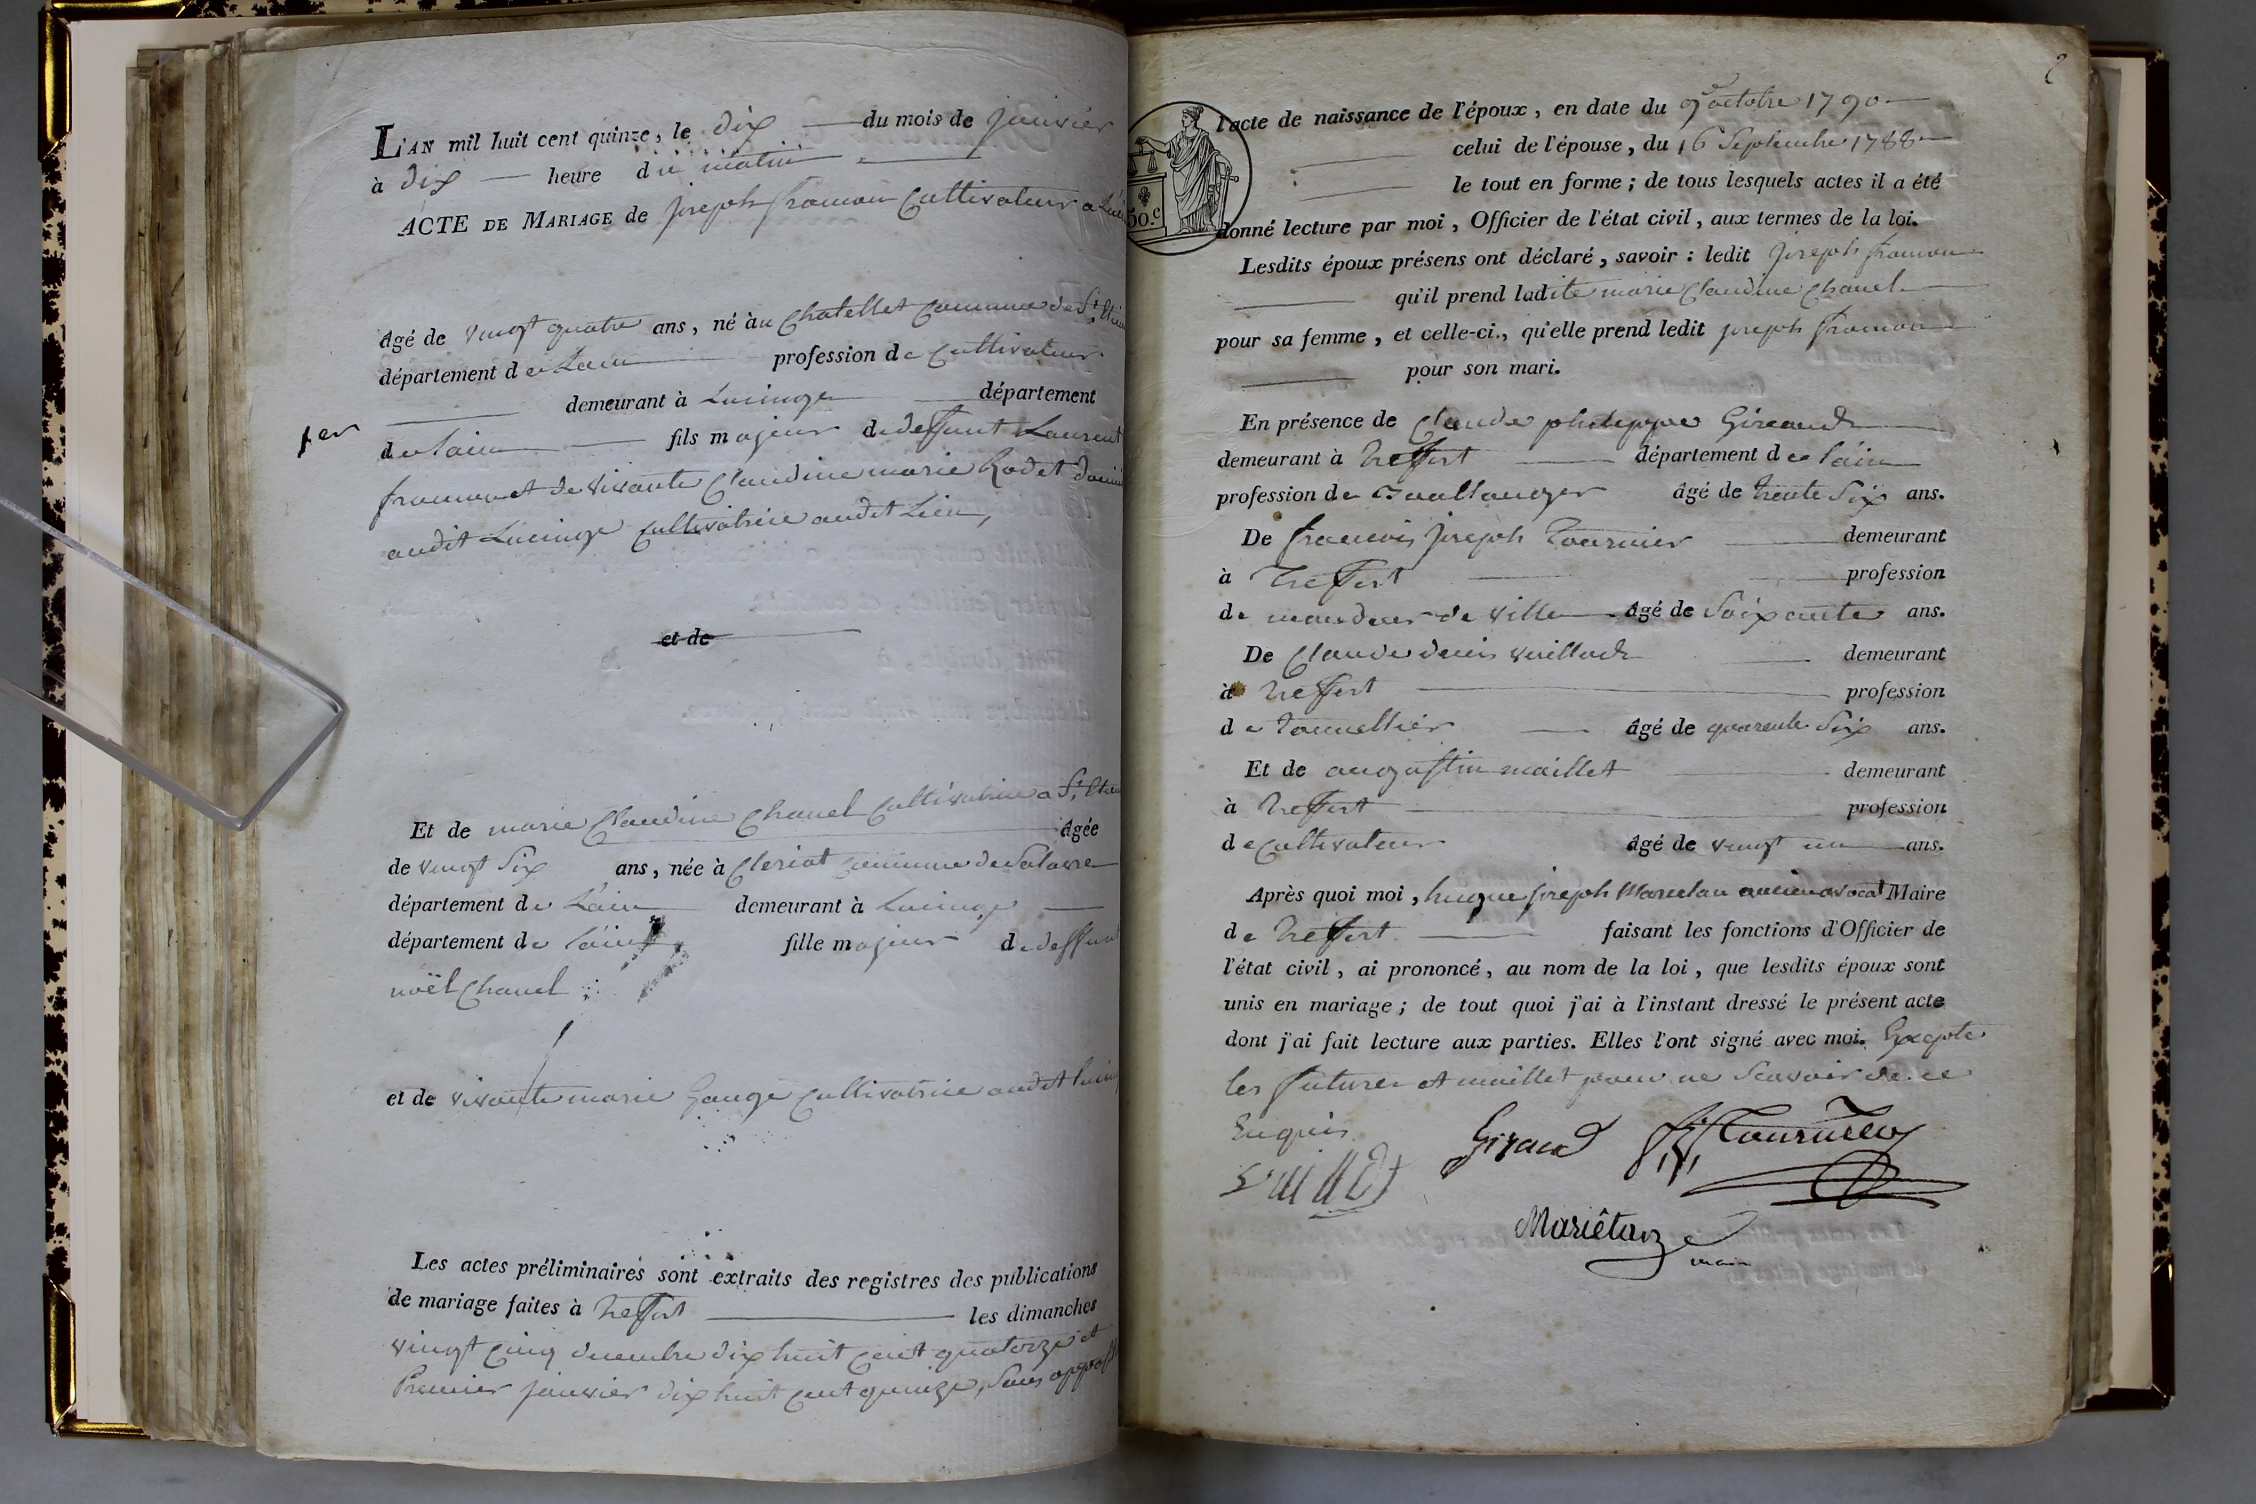 L'AN mil huit cent quinze, le dix du mois de janvier
à dix heure du matin
ACTE DE MARIAGE de joseph framon Cultivateur a
âgé de vingt quatre ans, né àu Chatellet Commune de St
département de Lain profession de Cultivateur
demeurant à Lucinge département
1er
de lain fils majeur de deffunt Laurent
framon et de vivante Claudine marie Rodet
audit Lucinge Cultivatrice audit Lieu,
et de
Et de marie Claudine Chanel Cultivatrice a St
âgée
de vingt Six ans, née à Cleriat Commune de Salavre
département de Lain demeurant à Lucinge
département de lain fille majeur de deffunt
noël Chanel
et de vivante marie Gauge Cultivatrice audit
Les actes préliminaires sont extraits des registres des publications
de mariage faites à Treffort les dimanches
vingt Cinq decembre dix huit Cent quatorze et
Premier janvier dix huit Cent quinze, Sans
2
l'acte de naissance de l'époux, en date du 9e octobre 1790
celui de l'épouse, du 16 Septembre 1788
le tout en forme; de tous lesquels actes il a été
50.c
donné lecture par moi, Officier de l'état civil, aux termes de la loi.
Lesdits époux présens ont déclaré, savoir: ledit joseph framon
qu'il prend ladite marie Claudine Chanel
pour sa femme, et celle-ci, qu'elle prend ledit joseph framon
pour son mari.
En présence de Claude philippe Giraud
demeurant à Treffort département de lain
profession de Boullanger âgé de trente Six ans.
De francois joseph Tournier demeurant
à Treffort profession
de mandeur de ville âgé de Soixante ans.
De Claude denis demeurant
à Treffort profession
de tonnellier âgé de quarente Six ans.
Et de augustin maillet demeurant
à Treffort profession
de Cultivateur âgé de vingt un ans.
Après quoi moi, hugue joseph ancien avocat Maire
de Treffort faisant les fonctions d'Officier de
l'état civil, ai prononcé, au nom de la loi, que lesdits époux sont
unis en mariage; de tout quoi j'ai à l'instant dressé le présent acte
dont j'ai fait lecture aux parties. Elles l'ont signé avec moi. Excepte
les futures et maillet pour ne Scavoir de ce
Enquis
Giraud fj Tournier
Mariêtan
maire